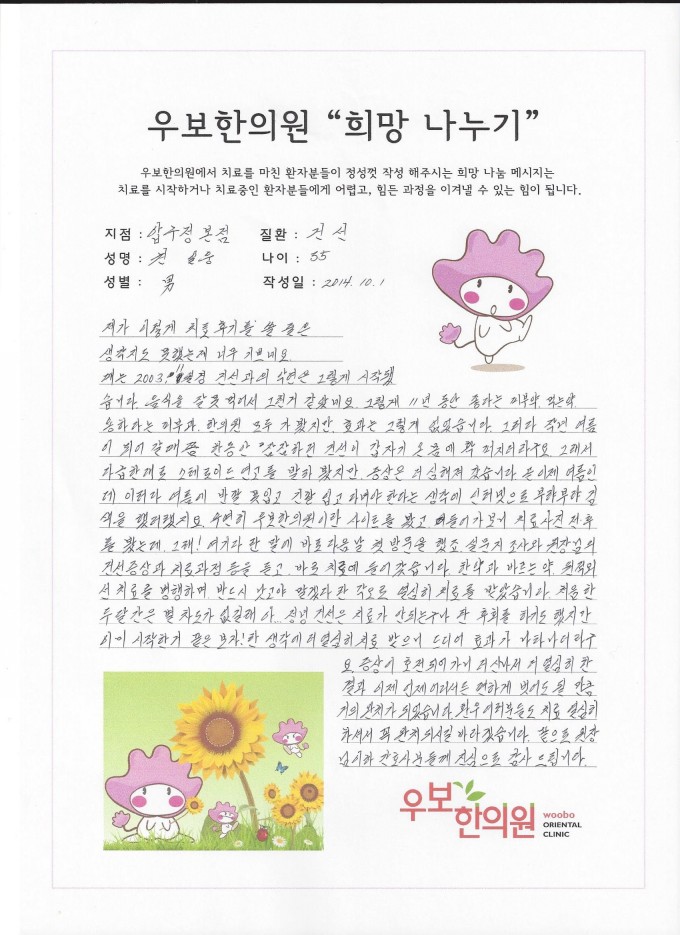 우보한의원 “희망 나누기”
우보한의원에서 치료를 마친 환자분들이 정성껏 작성 해주시는 희망 나눔 메시지는
치료를 시작하거나 치료중인 환자분들에게 어렵고, 힘든 과정을 이겨낼 수 있는 힘이 됩니다.
지점 : 압구정 본점 질환 : 건 선
성명 : 나이 : 35
성별 : 男 작성일 : 2014. 10. 1
제가 이렇게 치료 후기를 쓸 줄은
생각지도 못했는데 너무 기쁘네요
때는 2003. 건선과의 악연은 그렇게 시작됐
습니다. 음식을 잘못 먹어서 그런거 같았네요. 그렇게 11년 동안 좋다는 피부약, 먹는약
용하다는 피부과, 한의원 모두 가 봤지만, 효과는 그렇게 없었습니다. 그러다 작년 여름
이 되어 갈때쯤 한동안 잠잠하던 건선이 갑자기 온몸에 확 퍼지더라구요. 그래서
다급한대로 스테로이드 연고를 발라 봤지만, 증상은 더 심해져 갔습니다. 곧 이제 여름인
데 이러다 여름에 반팔 못입고 긴팔 입고 다녀야 한다는 생각에 인터넷으로 부랴부랴 검
색을 했더랬지요. 우연히 우보한의원이란 사이트를 봤고 들어가보니 치료사진 전후
를 봤는데. 그래! 여기다 란 말에 바로 다음날 첫 방문을 했죠. 설문지 조사와 원장님의
건선증상과 치료과정 등을 듣고. 바로 치료에 들어갔습니다. 한약과 바르는 약, 원적외
선 치료를 병행하며 반드시 낫고야 말겠다란 각오로 열심히 치료를 받았습니다. 처음 한
두달간은 별 차도가 없길래 아... 정녕 건선은 치료가 안되는구나 란 후회를 하기도 했지만
이미 시작한거 끝은 보자! 란 생각에 더 열심히 치료 받으니 드디어 효과가 나타나더라구
요. 증상이 호전되어가니 더 신나서 더 열심히 한
결과 이제 언제 어디서든 편하게 벗어도 될 만큼
거의 완치가 되었습니다. 환우여러분들도 치료 열심히
하셔서 꼭 완치 되시길 바라겠습니다. 끝으로 원장
님이하 간호사분들께 진심으로 감사 드립니다.
우보한의원 woobo
ORIENTAL
CLINIC